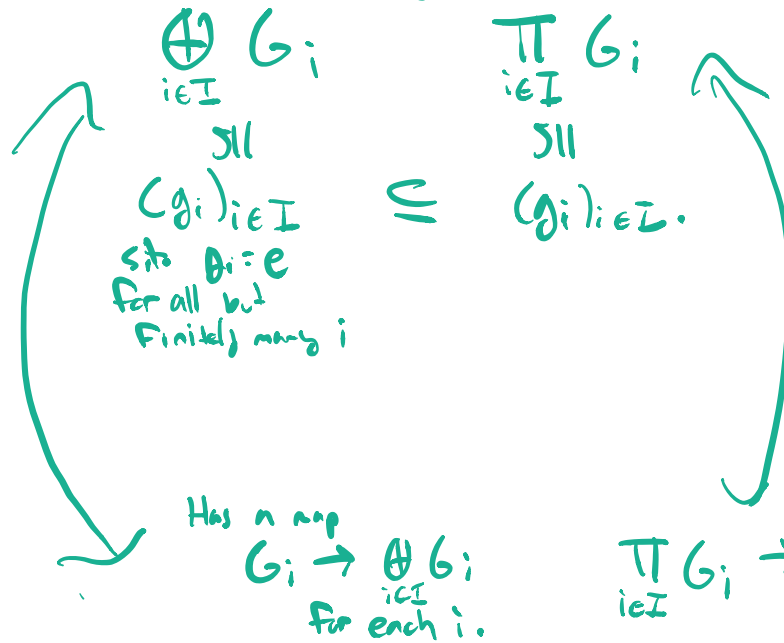 ⊕ G_i    ∏ G_i
i∈I    i∈I
≅    ≅
(g_i)_{i∈I}  ⊆  (g_i)_{i∈I}.
s.t. g_i = e
for all but
finitely many i
Has a map
G_i → ⊕ G_i    ∏ G_i →
i∈I    i∈I
for each i.